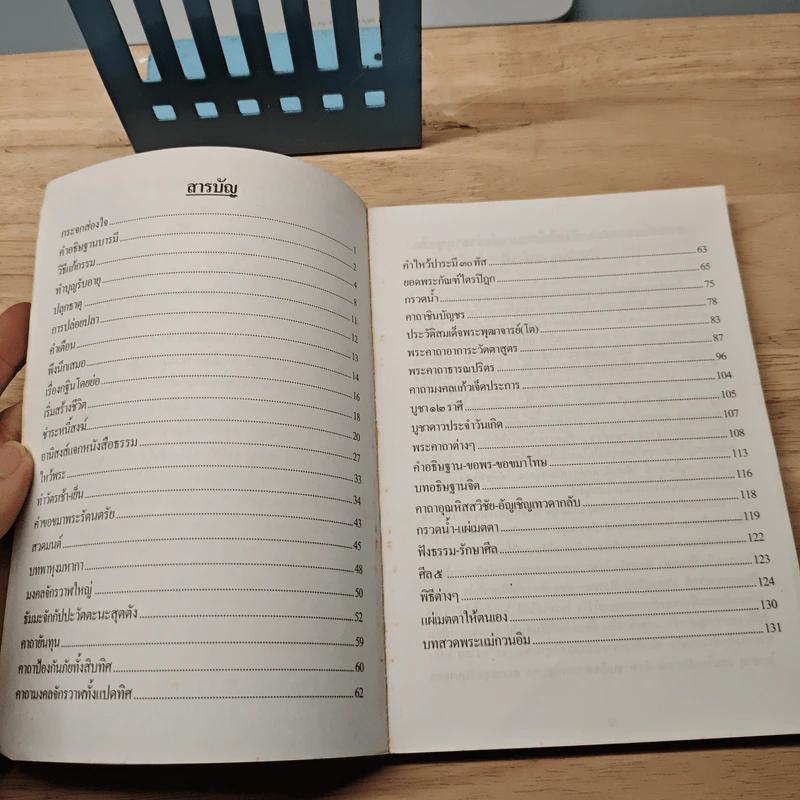 สารบัญ
กระจกส่องใจ 1
คำอธิษฐานบารมี 2
วิธีแก้กรรม 4
ทำบุญรับอายุ 8
ปลุกธาตุ 11
การปล่อยปลา 12
คำเตือน 13
พึงนึกเสมอ 14
เรื่องกฐินโดยย่อ 16
เริ่มสร้างชีวิต 18
ชำระหนี้สงฆ์ 20
อานิสงส์แจกหนังสือธรรม 27
ไหว้พระ 33
ทำวัตรเช้า-เย็น 34
คำขอขมาพระรัตนตรัย 43
สวดมนต์ 45
บทพาหุงมหากา 48
มงคลจักรวาฬใหญ่ 50
ธัมมะจักกัปปะวัตตะนะสุตตัง 52
คาถายันทุน 59
คาถาป้องกันภัยทั้งสิบทิศ 60
คาถามงคลจักรวาฬทั้งแปดทิศ 62
คำไหว้ปาระมี ๓๐ ทัส 63
ยอดพระกัณฑ์ไตรปิฎก 65
กรวดน้ำ 75
คาถาชินบัญชร 78
ประวัติสมเด็จพระพุฒาจารย์(โต) 83
พระคาถาอาการะวัตตาสูตร 87
พระคาถาธารณปริตร 96
คาถามงคลแก้วเจ็ดประการ 104
บูชา ๑๒ ราศี 105
บูชาดาวประจำวันเกิด 107
พระคาถาต่างๆ 108
คำอธิษฐาน-ขอพร-ขอขมาโทษ 113
บทอธิษฐานจิต 116
คาถาอุณหิสสวิชัย-อัญเชิญเทวดากลับ 118
กรวดน้ำ-แผ่เมตตา 119
ฟังธรรม-รักษาศีล 122
ศีล ๕ 123
พิธีต่างๆ 124
แผ่เมตตาให้ตนเอง 130
บทสวดพระแม่กวนอิม 131